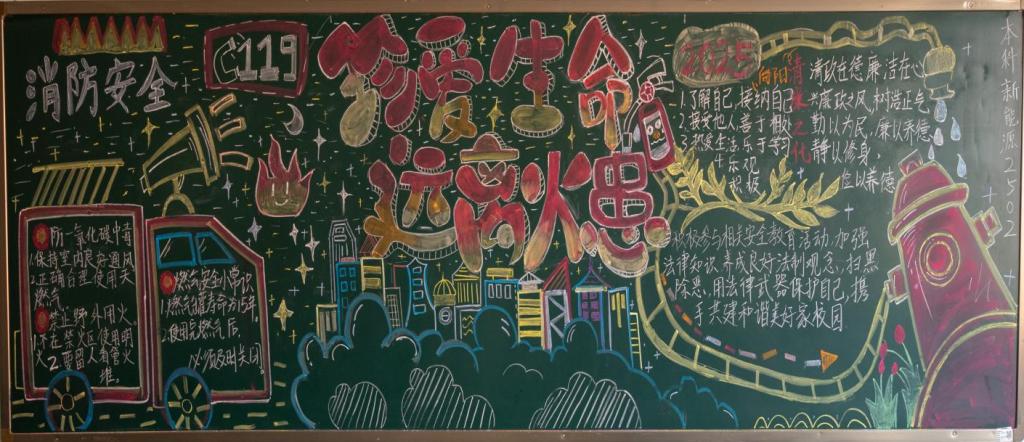 消防安全
119
珍爱生命
远离火患
2025
向阳
清廉之化
1.了解自己,接纳自己
2.接受他人,善于相处
3.热爱生活,乐于学习
4.乐观
积极
清政在德,廉洁在心
兴廉政之风,树浩正气
勤以为民,廉以养德
静以修身,
俭以养德
本科新能源2502
防一氧化碳中毒
1.保持室内良好通风
2.正确合理使用天
燃气
禁止野外用火
1.不在禁火区使用明
火
2.要留人看管
燃气安全小常识
1.燃气灌寿命为15年
2.使用完燃气后
必须及时关闭
积极参与相关安全教育活动,加强
法律知识,养成良好法制观念,扫黑
除恶,用法律武器保护自己,携
手共建和谐美好家校园.